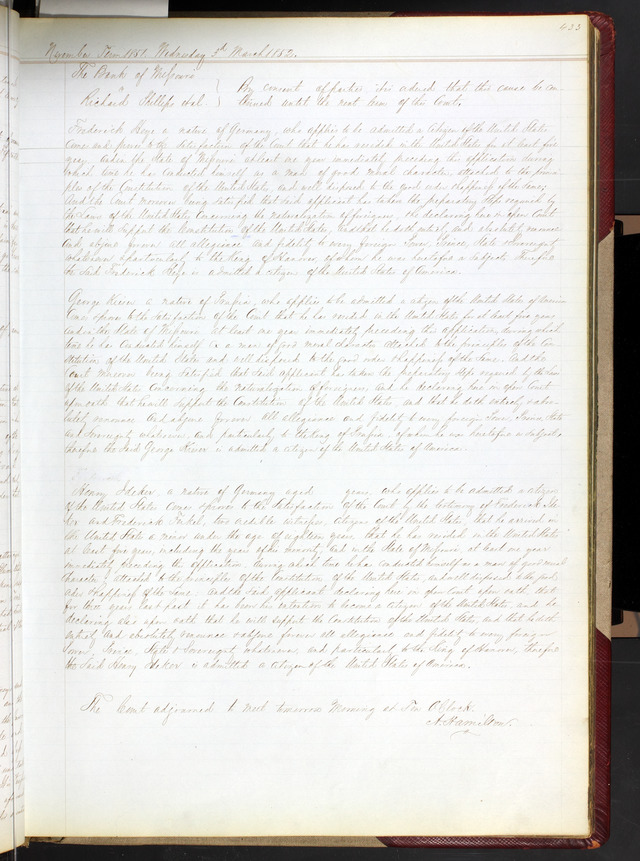 433
November Term 1851. Wednesday 3d March 1852.
The Bank of Missouri
vs
Richard Phillips et al.
By consent of parties it is ordered that this cause be con-
tinued until the next term of this Court.
Frederick a native of Germany, who applies to be admitted a citizen of the United States
Comes and proves to the satisfaction of the Court that he has resided in the United States for at least five
years, and in the State of Missouri at least one year immediately preceding this application during
which time he has conducted himself as a man of good moral character, attached to the princi-
ples of the Constitution of the United States, and well disposed to the good order & happiness of the same;
And the Court moreover being satisfied that said applicant has taken the preparatory steps required by
the Laws of the United States concerning the naturalization of foreigners, & he declaring here in open Court
that he will support the Constitution of the United States, and that he doth entirely and absolutely renounce
and abjure forever all allegiance and fidelity to every foreign Power, Prince, State & Sovereignty
whatsoever & particularly to the King of Hanover, of whom he was heretofore a subject: Therefore
the said Frederick is admitted a citizen of the United States of America.
George a native of Prussia, who applies to be admitted a citizen of the United States of America
Comes & proves to the satisfaction of the Court that he has resided in the United States for at least five years
and in the State of Missouri at least one year immediately preceding this application, during which
time he has conducted himself as a man of good moral character attached to the principles of the Con-
stitution of the United States and well disposed to the good order & happiness of the same. And the
Court moreover being satisfied that said applicant has taken the preparatory steps required by the Laws
of the United States concerning the naturalization of foreigners, and he declaring here in open Court
upon oath that he will support the Constitution of the United States, and that he doth entirely & abso-
lutely renounce and abjure forever all allegiance and fidelity to every foreign Power, Prince, State
and Sovereignty whatsoever, and particularly to the King of Prussia of whom he was heretofore a subject;
therefore the said George is admitted a citizen of the United States of America.
Henry a native of Germany aged years, who applies to be admitted a citizen
of the United States, comes & proves to the satisfaction of the Court by the testimony of Frederick
and Frederick two credible witnesses, citizens of the United States, that he arrived in
the United States a minor under the age of eighteen years, that he has resided in the United States
at least five years, including the years of his minority, and in the State of Missouri, at least one year
immediately preceding this application, during which time he has conducted himself as a man of good moral
character; attached to the principles of the Constitution of the United States, and well disposed to the good
order & happiness of the same: And the said applicant declaring here in open Court upon oath, that
for three years last past it has been his intention to become a citizen of the United States, and he
declaring also upon oath that he will support the Constitution of the United States, and that he doth
entirely and absolutely renounce & abjure forever all allegiance and fidelity to every foreign
Power, Prince, State & Sovereignty whatsoever, and particularly to the King of Hanover, Therefore
the said Henry is admitted a citizen of the United States of America.
The Court adjourned to meet tomorrow Morning at Ten O'Clock.
A. Hamilton